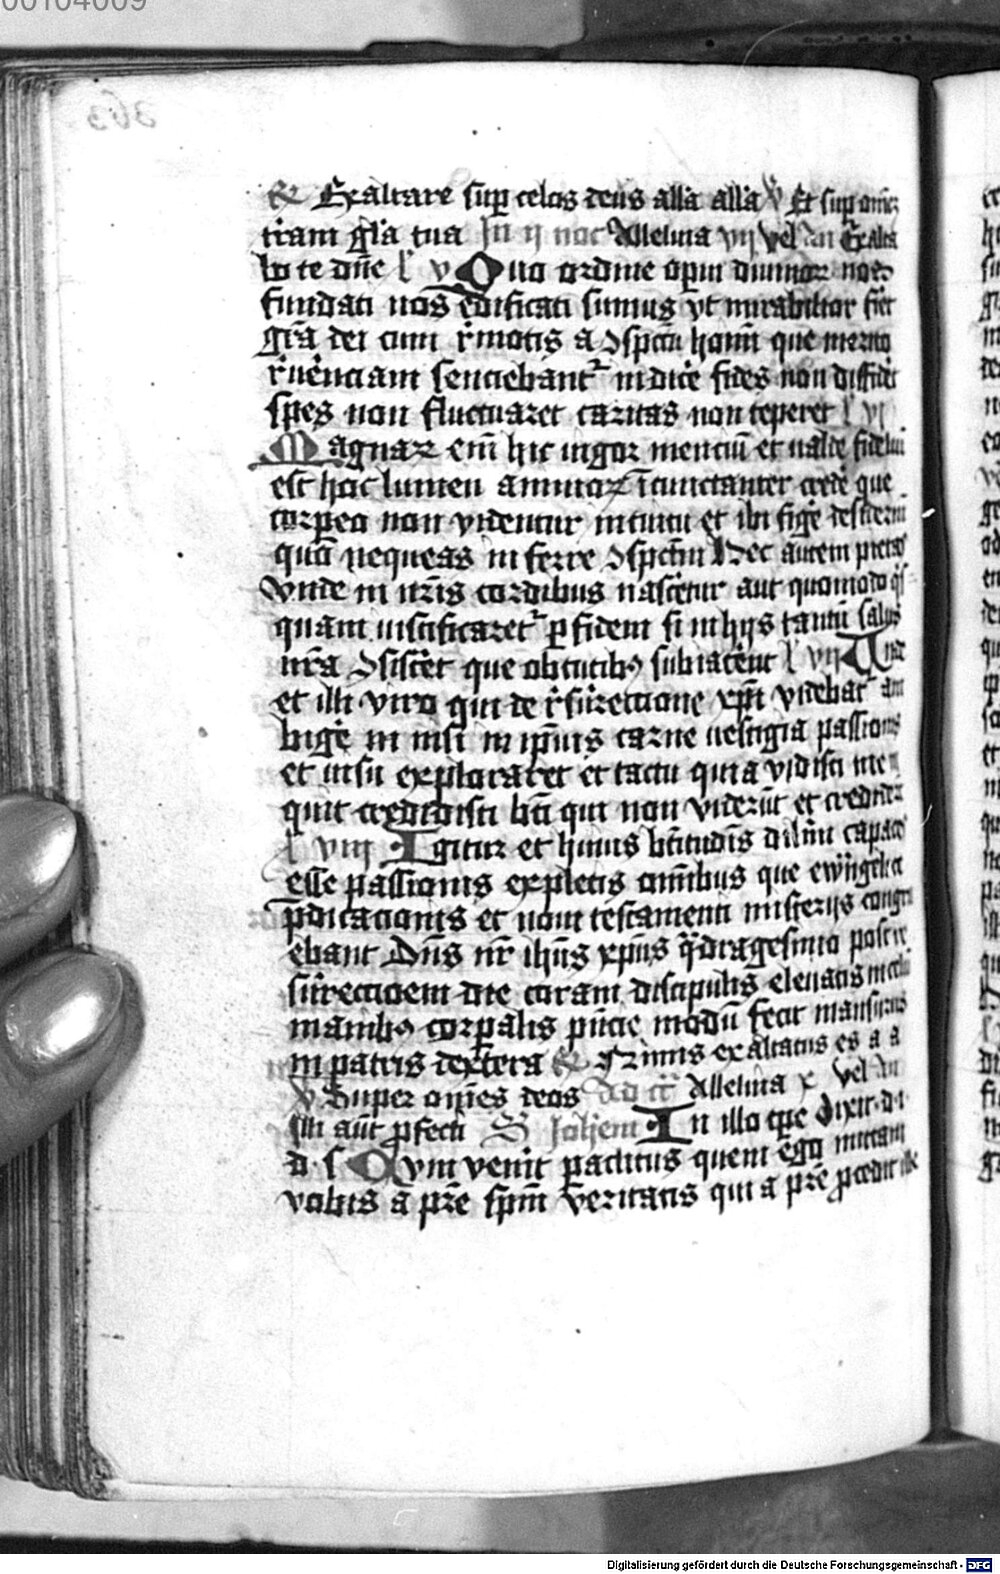 00104009
363
R Exaltare sup celos deus alla alla v Et sup omnez
tram gla tua In ij noc Alleluia vij vel an Exalta
bo te dne l v Quo ordine operu diuinor nos
fundati nos edificati sumus vt mirabilior fiet
gra dei cum rmotis a ospctu homi que merito
ruerciam senciebant indice fides non diffidet
spes non fluctuaret caritas non teperet l vi
Magnar em hic uigor menciu et valde fideliu
est hoc lumen animor icunctanter crede que
corpeo non videntur intuitu et ibi fige desideriu
quo nequeas in ferre ospctm Hec autem pietas
Vnde in nris cordibus nasceretur aut quomodo qs
quam iustificaret p fidem si in hijs tantu salus
nra osisteret que obtutib9 subiacerent l vij Vnde
et illi viro qui de rsurectione xpi videbat am
bige in nisi in ipius carne vestigia passionis
et uisu exploraret et tactu quia vidisti me in
quit credidisti bti qui non viderut et credider
l viij Igitur et huius btitudis dilmi capaces
esse passionis expletis omibus que ewngelice
pdicationis et noui testamenti misterijs congru
ebant Dns nr ihus xpus qdragesimo post re
surrectioem die coram discipulis eleuatis in celu
manib9 corpalis pncie modu fecit mansurus
in patris dextera R Primis exaltatus es a a
v Super omes deos ad cc Alleluia x vel an
Illi aut pfecti S Iohem In illo tpe dixit d i
d s Qvm venit paclitus quem ego mittam
vobis a pre spm veritatis qui a pre pcedit ille
Digitalisierung gefördert durch die Deutsche Forschungsgemeinschaft - DFG